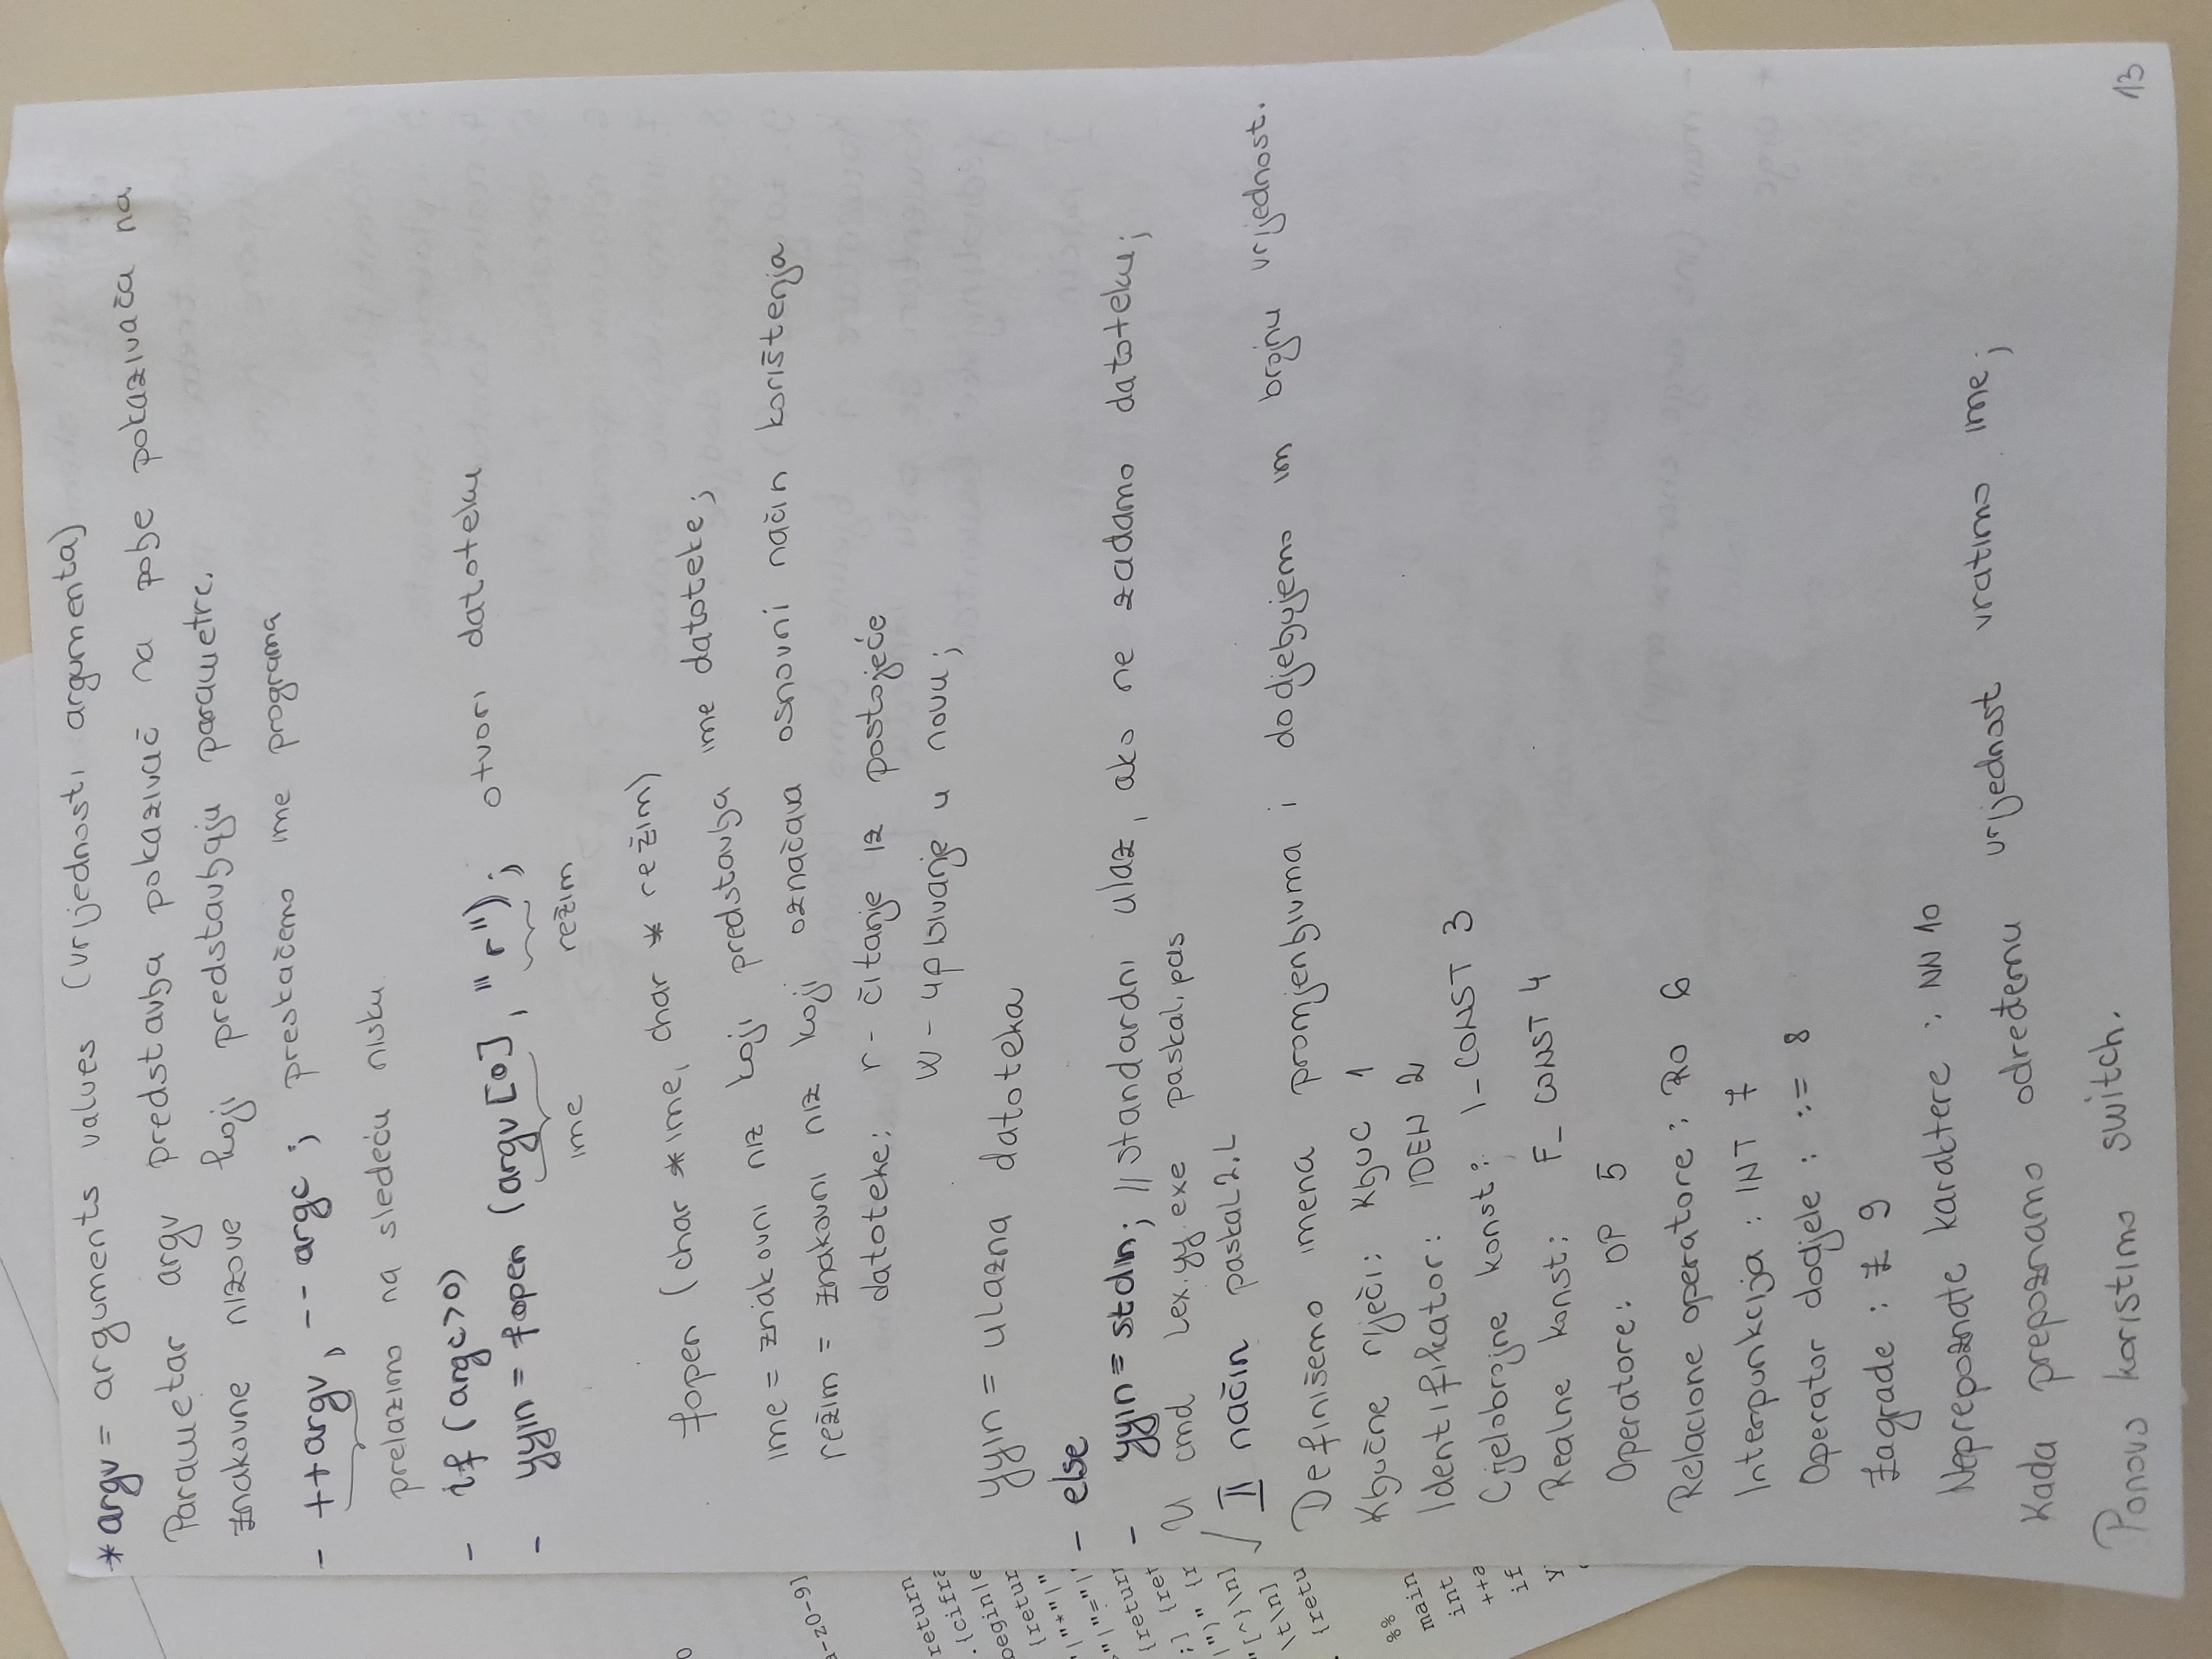 *argv = arguments values (vrijednosti argumenta)
Parametar argv predstavlja pokazivač na polje pokazivača na
znakovne nizove koji predstavljaju parametre.
- ++argv, --argc; preskačemo ime programa
prelazimo na sledeću nisku
- if (argc>0)
- yyin = fopen (argv[0], "r"); otvori datoteku
ime režim
fopen (char *ime, char * režim)
ime = znakovni niz koji predstavlja ime datoteke;
režim = znakovni niz koji označava osnovni način korištenja
datoteke: r - čitanje iz postojeće
w - upisivanje u novu;
yyin = ulazna datoteka
- else
- yyin = stdin; //standardni ulaz, ako ne zadamo datoteku;
U cmd Lex.yy.exe paskal.pas
√ II način paskal2.L
Definišemo imena promjenljivma i dodjeljujemo im brojnu vrijednost.
Ključne riječi: KLJUC 1
Identifikator: IDEN 2
Cjelobrojne konst: I_CONST 3
Realne konst: F_CONST 4
Operatore: OP 5
Relacione operatore: RO 6
Interpunkcija: INT 7
Operator dodjele: := 8
Zagrade: Z 9
Neprepoznate karaktere: NN 10
Kada prepoznamo određemu vrijednost vratimo ime;
Ponovo koristimo switch.
13
0
a-z0-9]
return
.{cifra
begin|e
{retur
"|"*"|"
"|"="|"
{return
;] {ret
|")" {r
"[^}\n]
\t\n]
. {retu
%%
main
int
++a
if
y